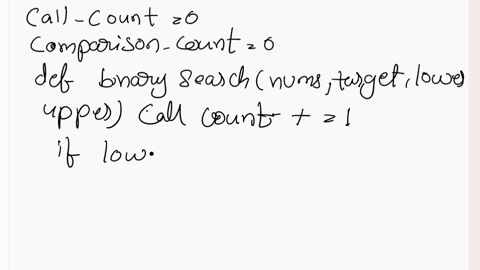 Call-Count =0
Comparison-count=0
def bnary search(nums, target, lower
upper) Call count + =1
if low.